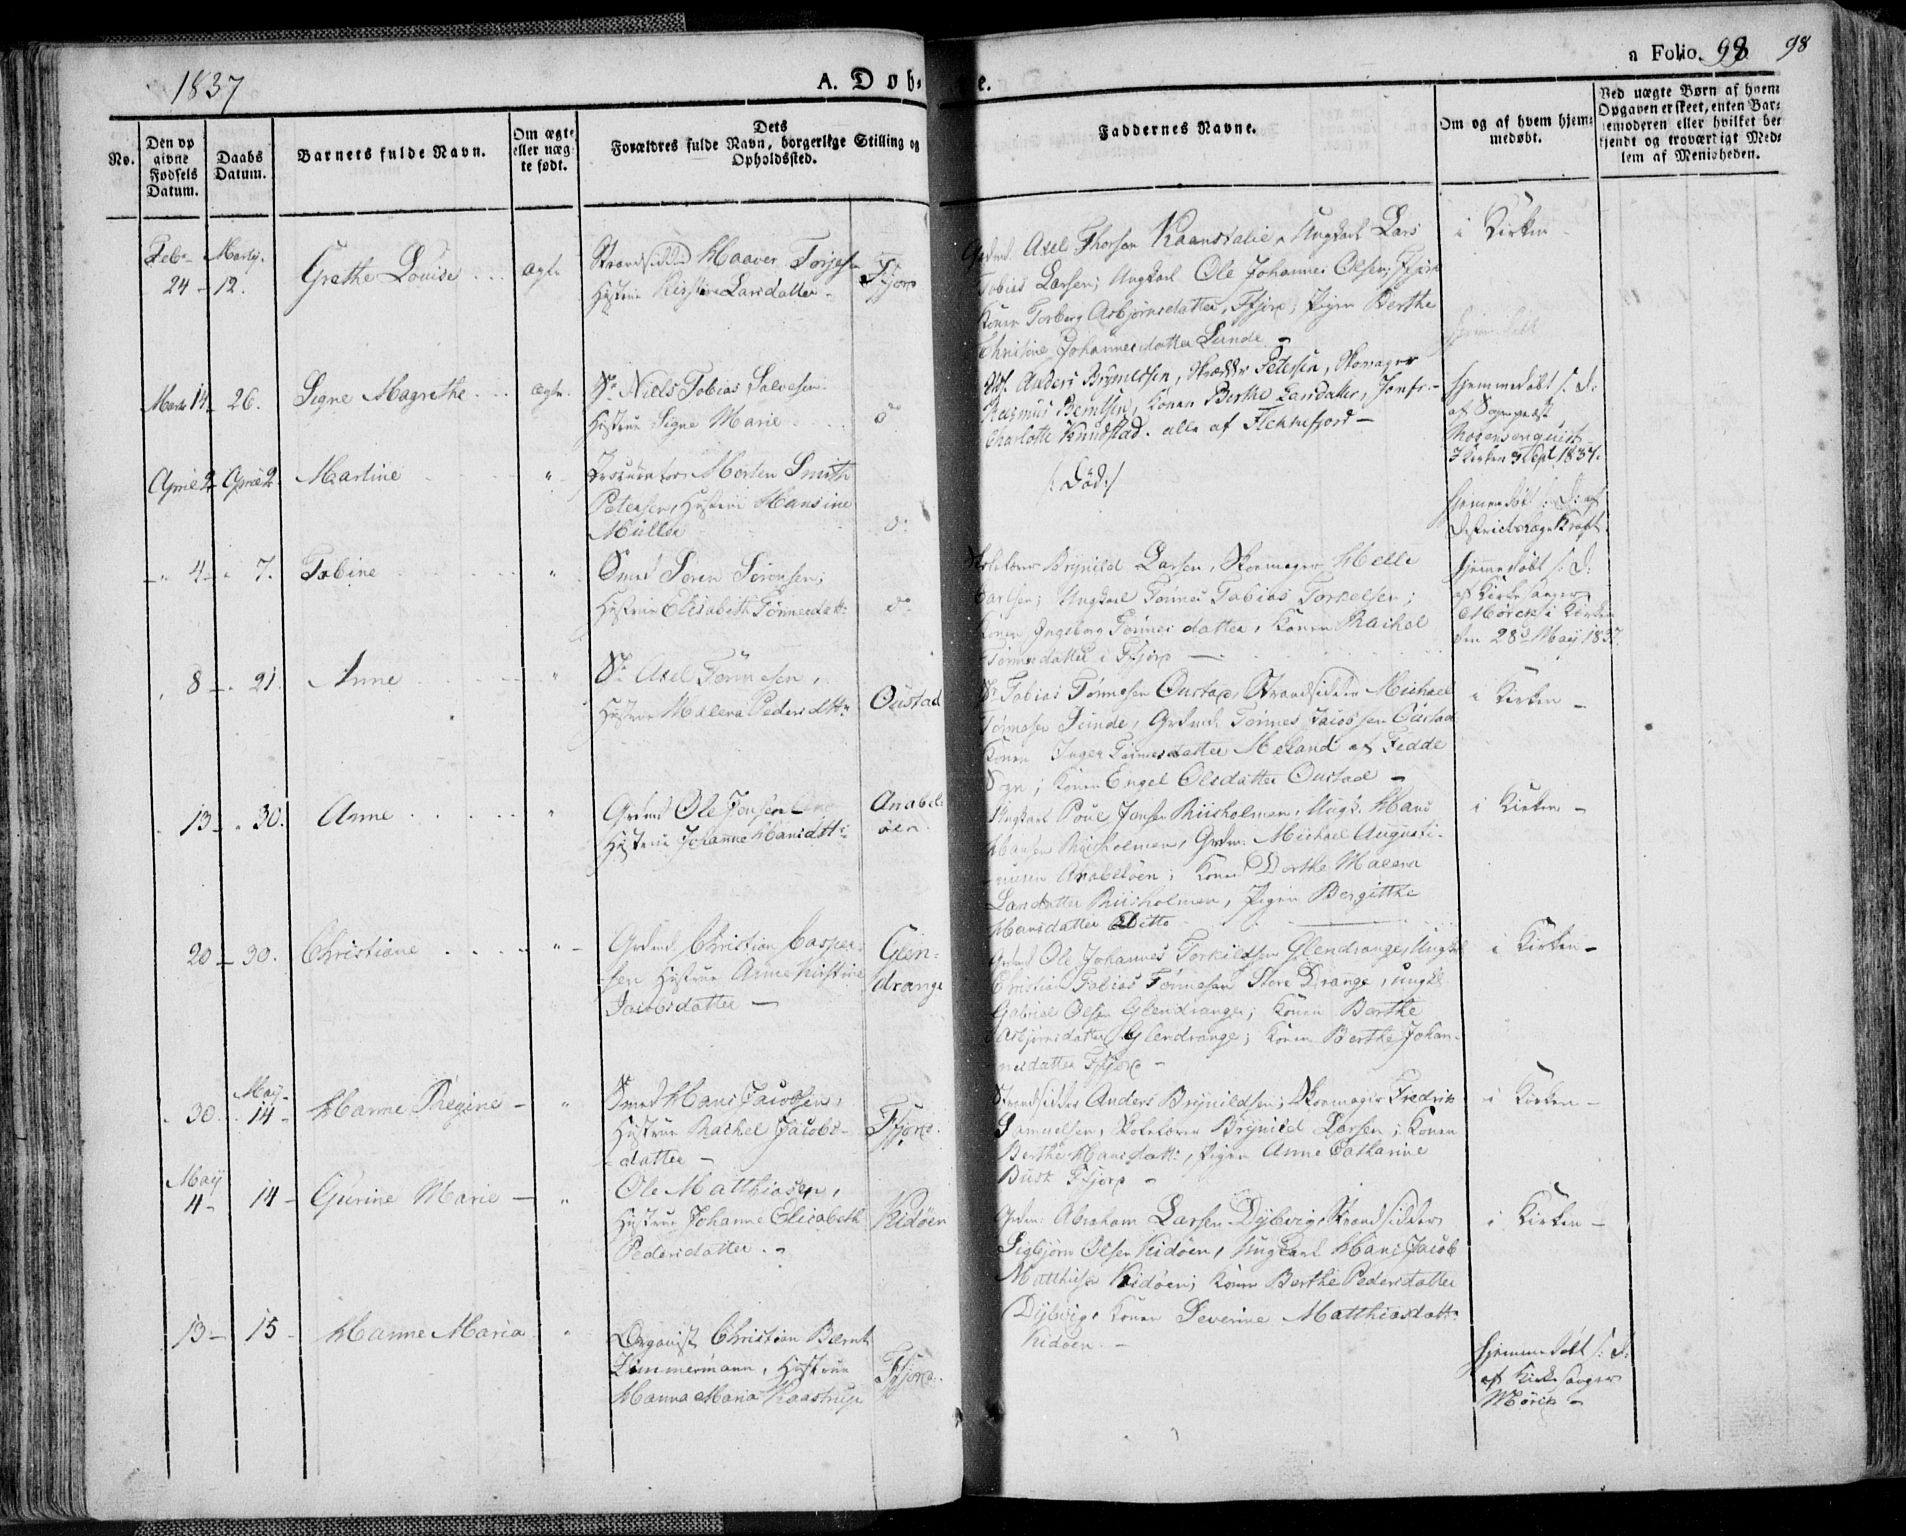 1837
A. Døb-
e.
a Folio. 98
98
No.
Den op
givne
Fødsels
Datum.
Daabs
Datum.
Barnets fulde Navn.
Om ægte
eller uæg-
te født.
Dets
Forældres fulde Navn, borgerlige Stilling og
Opholdssted.
Faddernes Navne.
Om og af hvem hjem-
medøbt.
Ved uægte Børn af hvem
Opgaven er skeet, enten Bar-
nemoderen eller hvilket be-
kjendt og troværdigt Med-
lem af Menigheden.
Feb. 24 - Martz. 12.
Grethe Louise
ægte
Strandsidder Haaver Torjesen
Hustrue Kirstine Larsdatter -
Ffjord
Grdmd. Axel Thorsen Ungkarl Lars
Tobias Larsen; Ungkarl Ole Johannes Olsen, Ffjord
Konen Torberg Asbjørnsdatter, Ffjord; Pigen Berthe
Christine Johannesdatter Lunde -
i Kirken -
Marts 14 - 26.
Signe Magrethe
ægte.
Sr. Niels Tobias Salvesen
Hustrue Signe Marie
do
Anders Brynildsen, Skrædder Petersen, Skomager
Rasmus Berntsen, Konen Berthe Larsdatter, Jomfr. -
Charlotte Knudstad. alle af Flekkefjord -
hjemmedøbt s: d:
af Sognepræst
i Kirken 3 Sept. 1837.
April 2 - April 2
Martine
"
Procurator Morten Smith
Petersen, Hustrue Hansine
Müller
do
/: Død :/
hjemmedøbt s: D: af
Districtslæge Kraft.
" 4 - " 7.
Tobine
"
Smed Søren Sørensen;
Hustrue Elisabeth Tønnesdatt:
do
Skolelærer Brynild Larsen, Skomager Helle
Carlsen; Ungkarl Tønnes Tobias Torkelsen;
Konen Ingeborg Tønnesdatter, Konen Rachel
Tønnesdatter i Ffjord -
hjemmedøbt s: d:
af Kirkesanger
Mørck i Kirken
den 28de Maij 1837.
" 8 - " 21.
Anne
"
Sr. Axel Tønnesen,
Hustrue Malena Pedersdtr
Oustad
Sr. Tobias Tønnesen Oustad, Strandsidder Michael
Tønnesen Lunde, Grdmd. Tønnes Jacobsen Oustad
Konen Inger Tønnesdatter Meland af Fedde
Sogn; Konen Engel Olsdatter Oustad -
i Kirken -
" 13 - " 30.
Anne
"
Grdmd Ole Jonsen
Hustrue Johanne Hansdtr:
Anabel-
øen.
Ungkarl Poul Jonsen Riisholmen, Ungk. Hans
Hansen Riisholmen, Grdm. Michael Augusti-
nusen Anabeløen; Konen Dorthe Malena
Larsdatter Riisholmen, Pigen Bergitthe
Hansdatter Ditto -
i Kirken -
20 - 30.
Christiane
"
Grdmd. Christian Casper-
sen Hustrue Anne Kirstine
Jacobsdatter -
Glen-
drange
Grdmd Ole Johannes Torkildsen Glendrange, Ungkl
Christian Tobias Tønnesen Store Drange, ungkl
Gabriel Olsen Glendrange; Konen Berthe
Asbjørnsdatter Glendrange; Konen Berthe Johan-
nesdatter Ffjord -
i Kirken -
" 30. Maij 14 -
Hanne Regine -
"
Smed Hans Jacobsen,
Hustrue Rachel Jacobs-
datter -
Ffjord.
Strandsidder Anders Brynildsen; Skomager Fredrik
Samuelsen, Skolelærer Brynild Larsen; Konen
Berthe Hansdatt:, Pigen Anne Catharine
Busk Ffjord -
i Kirken -
Maij 4 - 14 -
Gurine Marie -
"
Ole Matthiasen,
Hustrue Johanne Elisabeth
Pedersdatter. -
Kidøen
Grdm: Abraham Larsen Dybvig, Strandsidder
Sigbjørn Olsen Kidøen, Ungkarl Hans Jacob
Matthisen Kidøen; Konen Berthe Pedersdatter
Dybvig, Konen Severine Matthiasdatt:
Kidøen. -
i Kirken -
13 - 15 -
Hanne Maria
"
Organist Christian Bernt
Zimmermann, Hustrue
Hanna Maria Kaastrup
Ffjord.
hjemmedøbt s: d:
af Kirkesanger
Mørck -